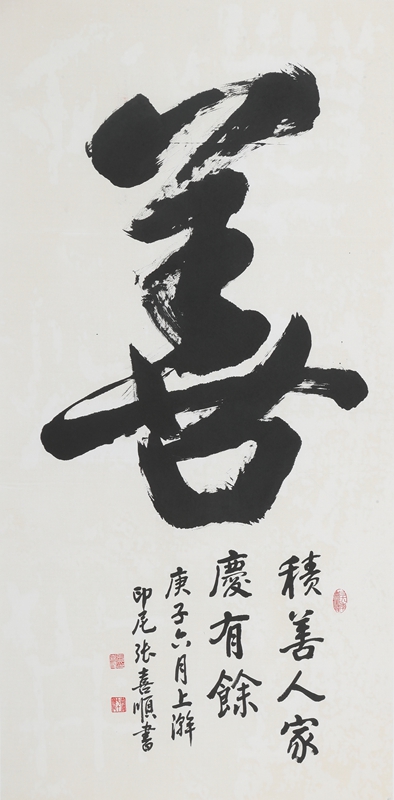 善
積善人家
慶有餘
庚子六月上澣
印尾張喜順書